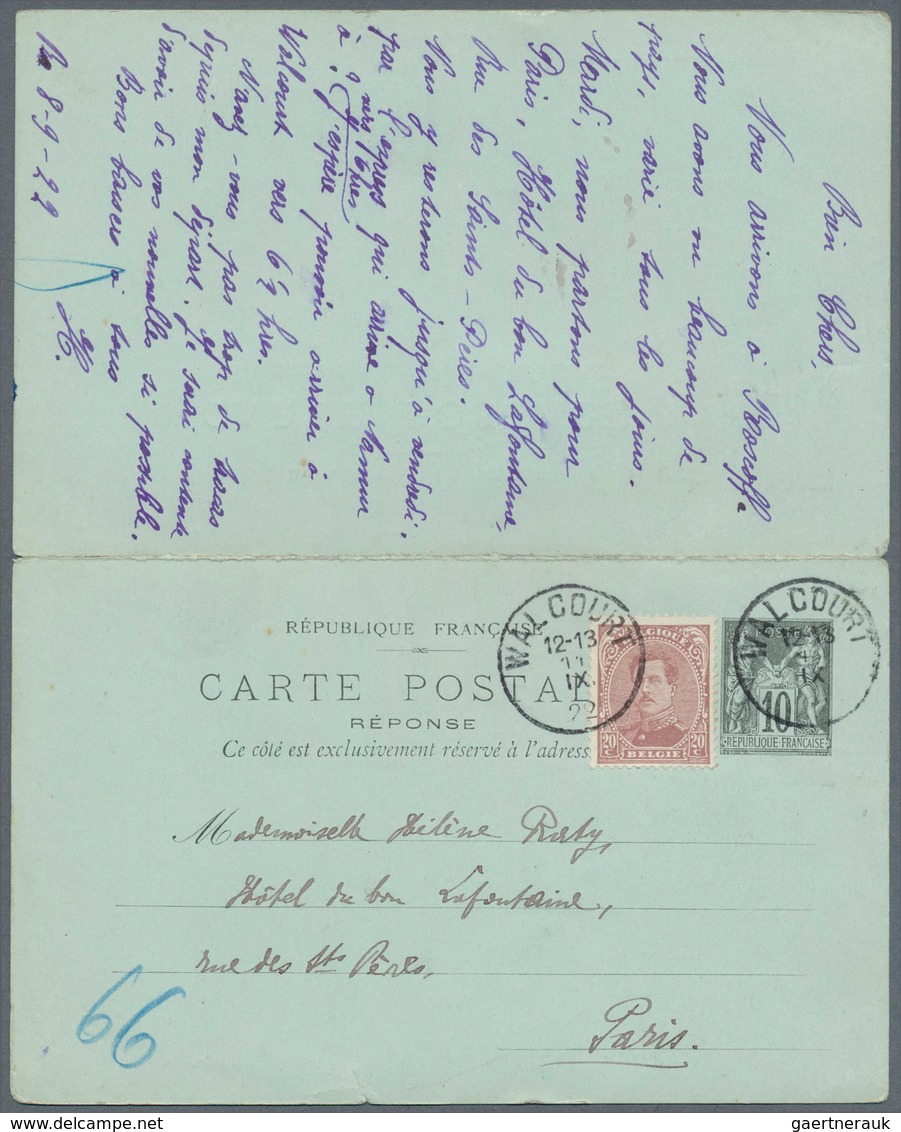 Bien Chers,
Nous arrivons à Roscoff
Nous avons vu beaucoup de
pays, varié tous les jours.
Mardi, nous partons pour
Paris, Hôtel du bon Lafontaine,
Rue des Saints-Pères.
Nous y resterons jusqu'à vendredi.
par l'express qui arrive à Namur
vers 16 hres
à ? J'espère pouvoir arriver à
Walcourt vers 6½ hres.
N'avez-vous pas trop de tracas
depuis mon départ. Je serai contente
d'avoir de vos nouvelles si possible.
Bons baisers à tous
H.
R. 8-9-22
RÉPUBLIQUE FRANÇAISE
CARTE POSTAL
RÉPONSE
Ce côté est exclusivement réservé à l'adress
WALCOURT
12-13
11
IX
22
BELGIQUE
20c 20c
BELGIE
WALCOURT
12-13
IX
POSTES
10
RÉPUBLIQUE FRANÇAISE
Mademoiselle Hélène Raty,
Hôtel du bon Lafontaine,
rue des Sts Pères,
Paris.
66
gaertnerauk